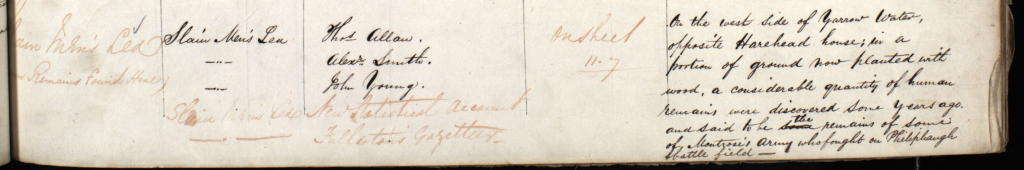 ain Men's Lea
Remains Found Here)
Slain Men's Lea
—"—
—"—
Slain Mens Lea
Thos Allan.
Alexr Smith.
John Young.
New Statistical Account
Fullarton's Gazetteer
On Sheet
11. 7
On the west side of Yarrow Water,
opposite Harehead house; in a
portion of ground now planted with
wood, a considerable quantity of human
remains were discovered some years ago.
and said to be some the remains of some
of Montrose's Army who fought on Philiphaugh
battle field —